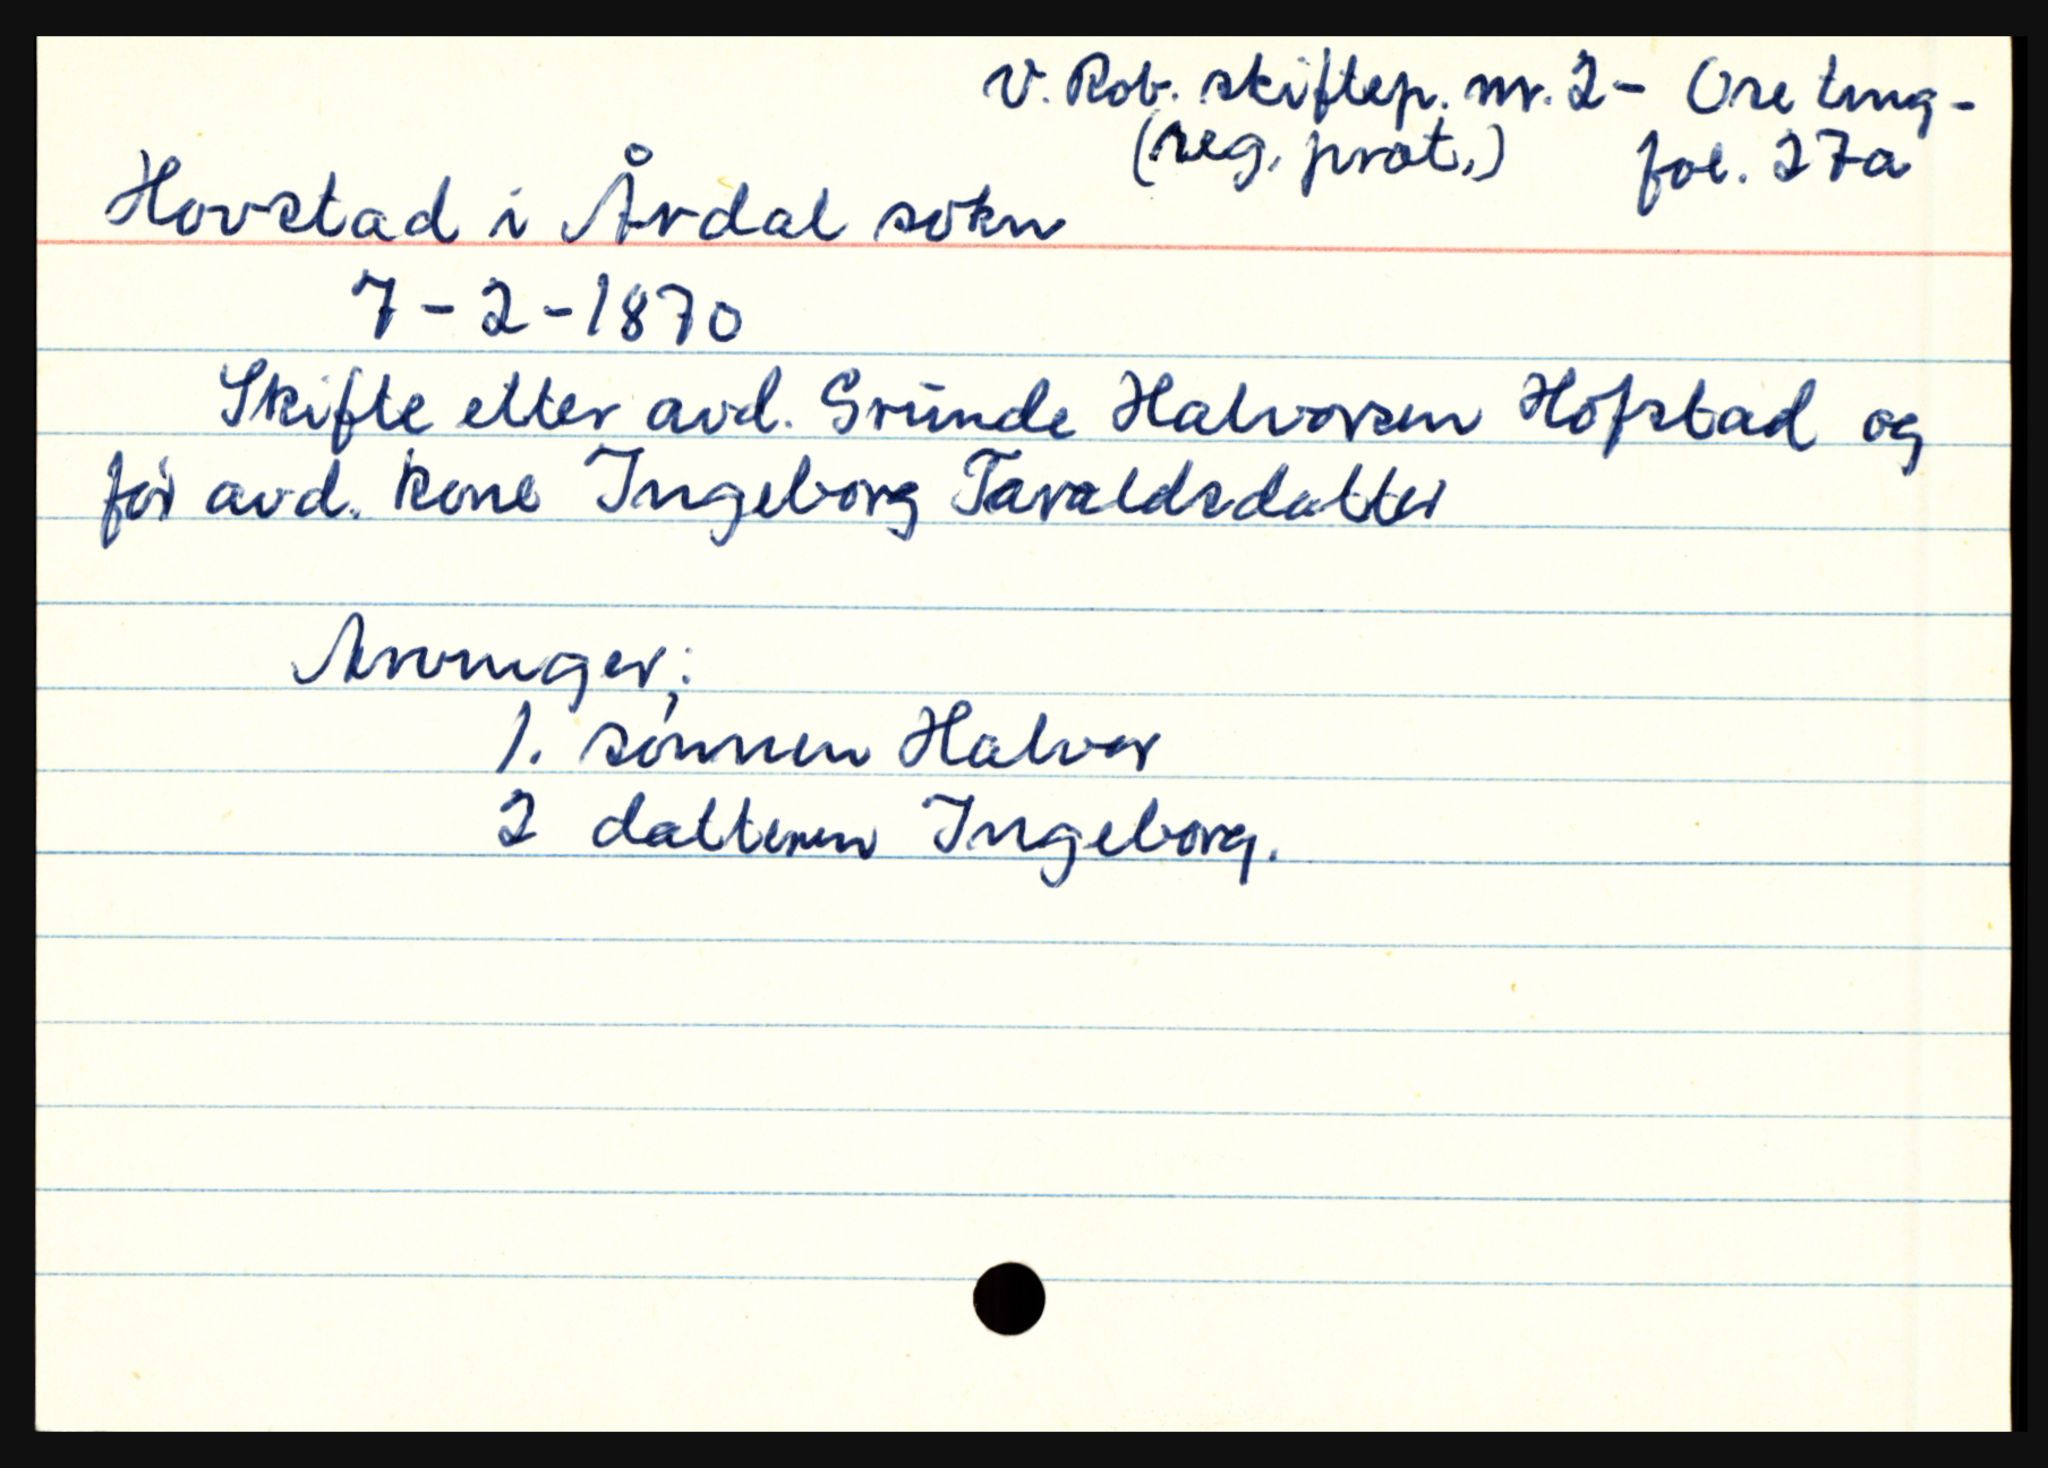 V. Rob. skiftep. nr. 2 - Ose ting -
(reg. prot.) fol. 27a
Hovstad i Årdal sokn
7-2-1870
Skifte etter avd. Grunde Halvorsen Hofstad og
før avd. kone Ingeborg Tavaldsdatter
Arvinger:
1. sønnen Halvor
2 datteren Ingeborg.